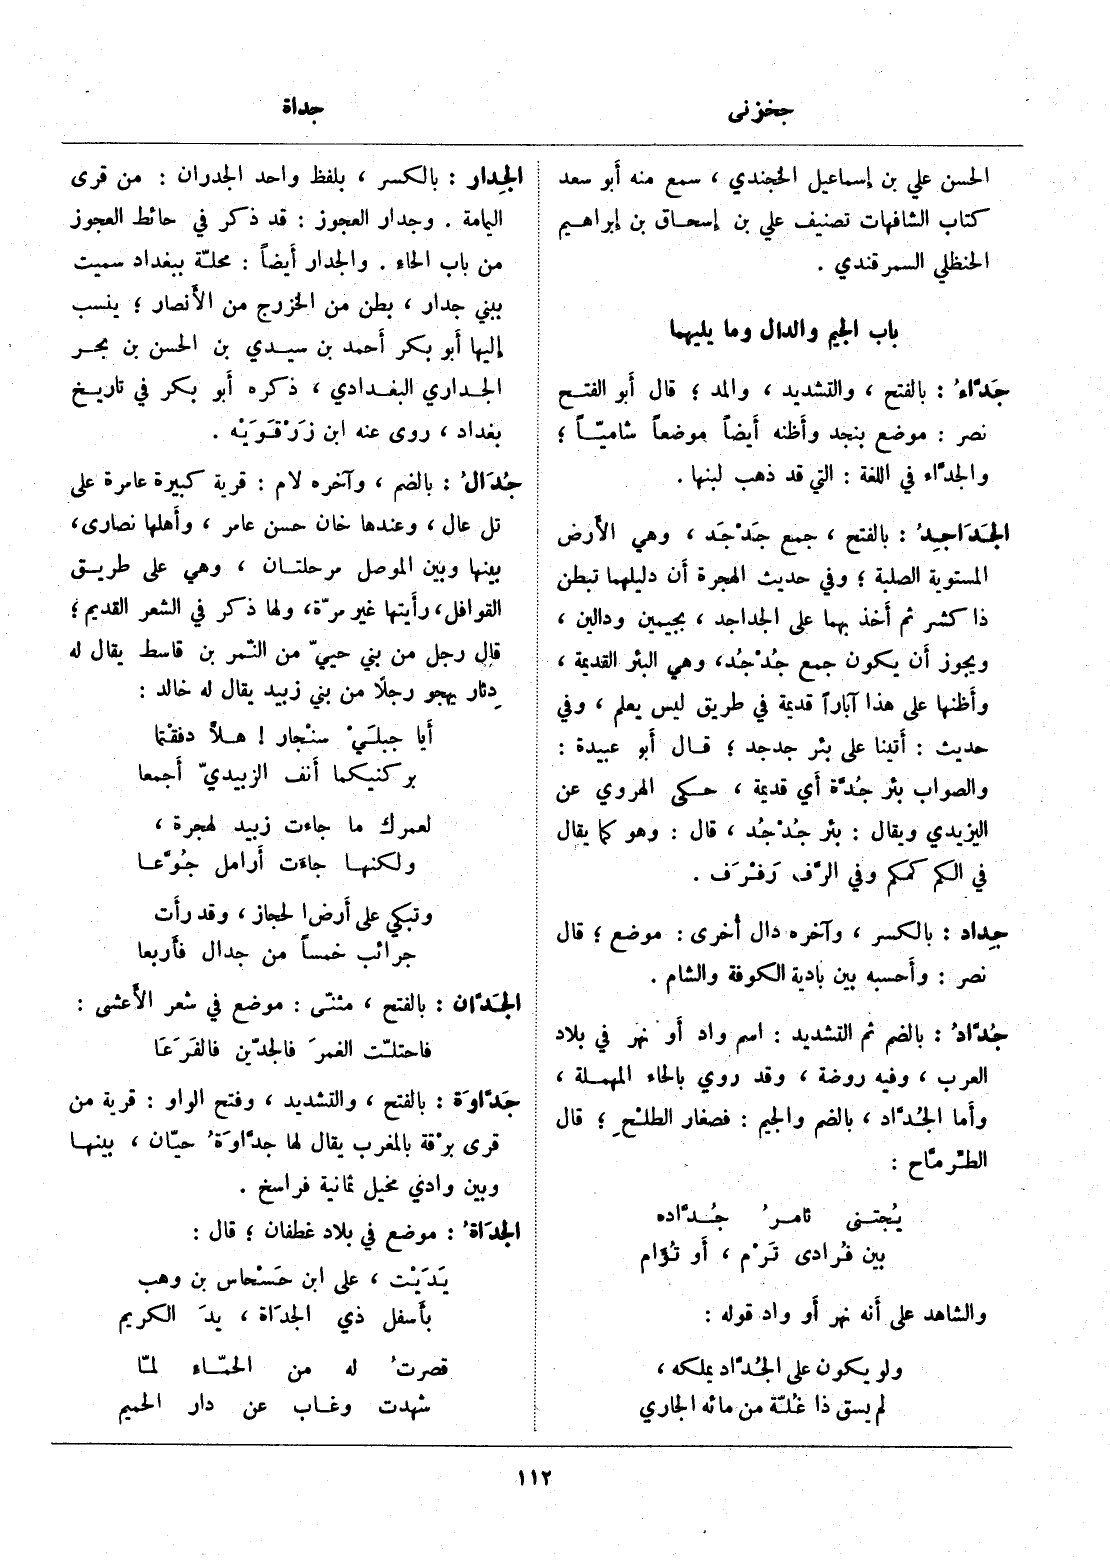 جخزنى
جداة
الحسن علي بن إسماعيل الخجندي ، سمع منه أبو سعد
كتاب الشافهات تصنيف علي بن إسحاق بن إبراهيم
الحنظلي السمرقندي .
باب الجيم والدال وما يليهما
جَدَّاءُ : بالفتح ، والتشديد ، والمد ؛ قال أبو الفتح
نصر : موضع بنجد وأظنه أيضاً موضعاً شاميّاً ؛
والجدَّاء في اللغة : التي قد ذهب لبنها .
الجَدَاجِدُ : بالفتح ، جمع جَدْجَد ، وهي الأرض
المستوية الصلبة ؛ وفي حديث الهجرة أن دليلهما تبطن
ذا كشر ثم أخذ بهما على الجداجد ، بجيمين ودالين ،
ويجوز أن يكون جمع جُدْجُد، وهي البئر القديمة ،
وأظنها على هذا آباراً قديمة في طريق ليس يعلم ، وفي
حديث : أتينا على بئر جدجد ؛ قال أبو عبيدة :
والصواب بئر جُدَّة أي قديمة ، حكى الهروي عن
اليزيدي ويقال : بئر جُدْجُد ، قال : وهو كما يقال
في الكم كمكم وفي الرَّف رَفْرَف .
جِداد : بالكسر ، وآخره دال أُخرى : موضع ؛ قال
نصر : وأحسبه بين بادية الكوفة والشام .
جُدَّادُ : بالضم ثم التشديد : اسم واد أو نهر في بلاد
العرب ، وفيه روضة ، وقد روي بالحاء المهملة ،
وأما الجُدَّاد ، بالضم والجيم : فصغار الطلْحِ ؛ قال
الطِّرمَّاح :
يُجتنى ثامرُ جُدَّاده
بين فُرادى تَرْم ، أو تُؤام
والشاهد على أنه نهر أو واد قوله :
ولو يكون على الجُدَّاد يملكه ،
لم يسق ذا غُلّة من مائه الجاري
الجِدار : بالكسر ، بلفظ واحد الجدران : من قرى
اليمامة . وجدار العجوز : قد ذكر في حائط العجوز
من باب الحاء . والجدار أيضاً : محلّة ببغداد سميت
ببني جدار ، بطن من الخزرج من الأنصار ؛ ينسب
إليها أبو بكر أحمد بن سيدي بن الحسن بن بحر
الجداري البغدادي ، ذكره أبو بكر في تاريخ
بغداد ، روى عنه ابن زَرْقَوَيْه .
جُدَالُ : بالضم ، وآخره لام : قرية كبيرة عامرة على
تل عال ، وعندها خان حسن عامر ، وأهلها نصارى،
بينها وبين الموصل مرحلتان ، وهي على طريق
القوافل، رأيتها غير مرّة، ولها ذكر في الشعر القديم ؛
قال رجل من بني حييّ من النّمر بن قاسط يقال له
دِثار يهجو رجلًا من بني زبيد يقال له خالد :
أيا جبلَيْ سنْجار ! هلاّ دفقْتما
بركنيكما أنف الزبيديّ أجمعا
لعمرك ما جاءت زبيد لهجرة ،
ولكنها جاءَت أرامل جُوَّعا
وتبكي على أرض الحجاز ، وقد رأت
جرائب خمساً من جدال فأربعا
الجَدَّان : بالفتح ، مثنّى : موضع في شعر الأَعشى :
فاحتلّت الغمرَ فالجدّين فالفَرَعَا
جَدَّاوَة : بالفتح ، والتشديد ، وفتح الواو : قرية من
قرى برْقة بالمغرب يقال لها جدَّاوَةُ حيّان ، بينها
وبين وادي مخيل ثمانية فراسخ .
الجَدَاةُ : موضع في بلاد غطفان ؛ قال :
يَدَيْت ، على ابن حَسْحاس بن وهب
بأَسفل ذي الجدَاة ، يدَ الكريم
قصرتُ له من الحمّاء لمّا
شهدت وغاب عن دار الحميم
١١٢